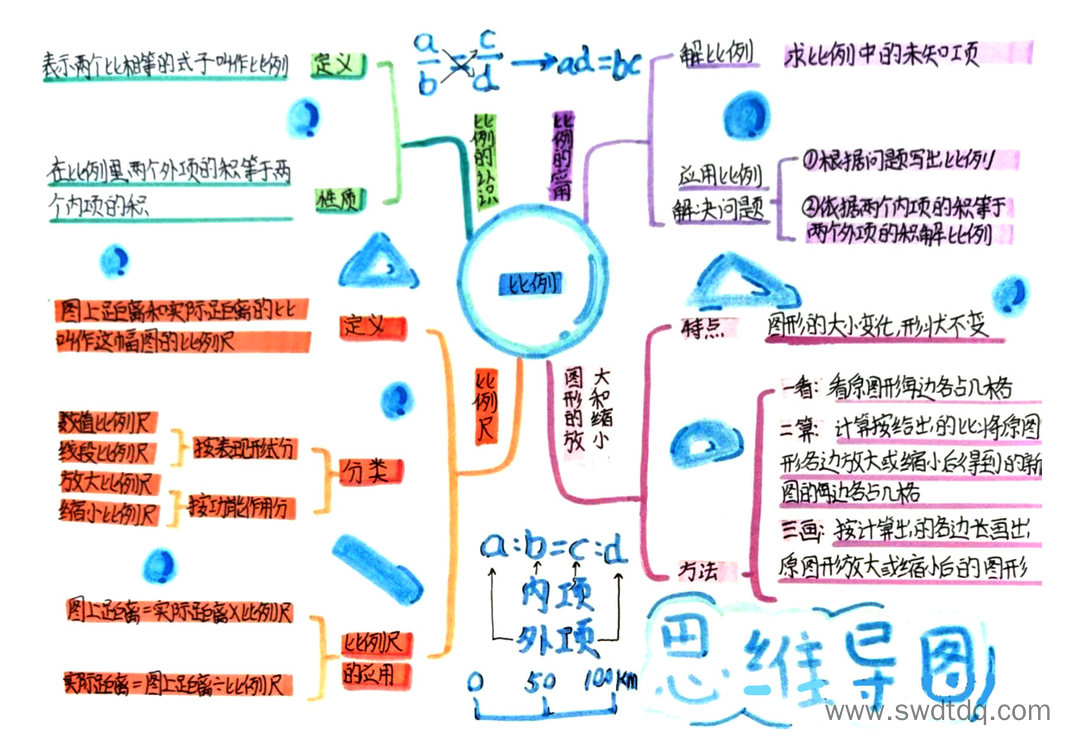 表示两个比相等的式子叫作比例
定义
在比例里,两个外项的积等于两
个内项的积
性质
比例的认识
a/b = c/d → ad=bc
比例的应用
解比例
求比例中的未知项
应用比例
解决问题
①根据问题写出比例
②依据两个内项的积等于
两个外项的积解比例
比例
图上距离和实际距离的比
叫作这幅图的比例尺
定义
比例尺
数值比例尺
线段比例尺
按表现形式分
放大比例尺
缩小比例尺
按功能作用分
分类
图上距离=实际距离×比例尺
实际距离=图上距离÷比例尺
比例尺
的应用
图形的放
大和缩小
特点
图形的大小变化,形状不变
方法
一看:看原图形每边各占几格
二算:计算按给出的比将原图
形各边放大或缩小后得到的新
图的每边各占几格
三画:按计算出的各边长画出
原图形放大或缩小后的图形
a:b=c:d
内项
外项
0 50 100km
思维导图
www.swdtdq.com